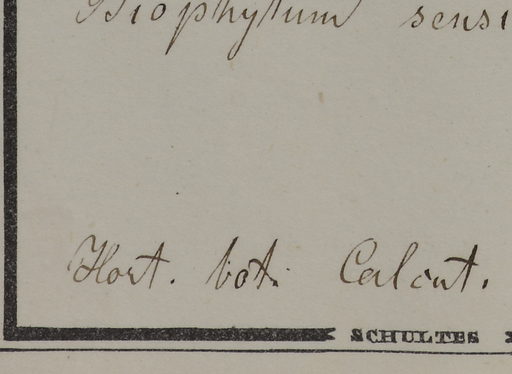 Biophytum sensi
Hort. bot. Calcut.
SCHULTES